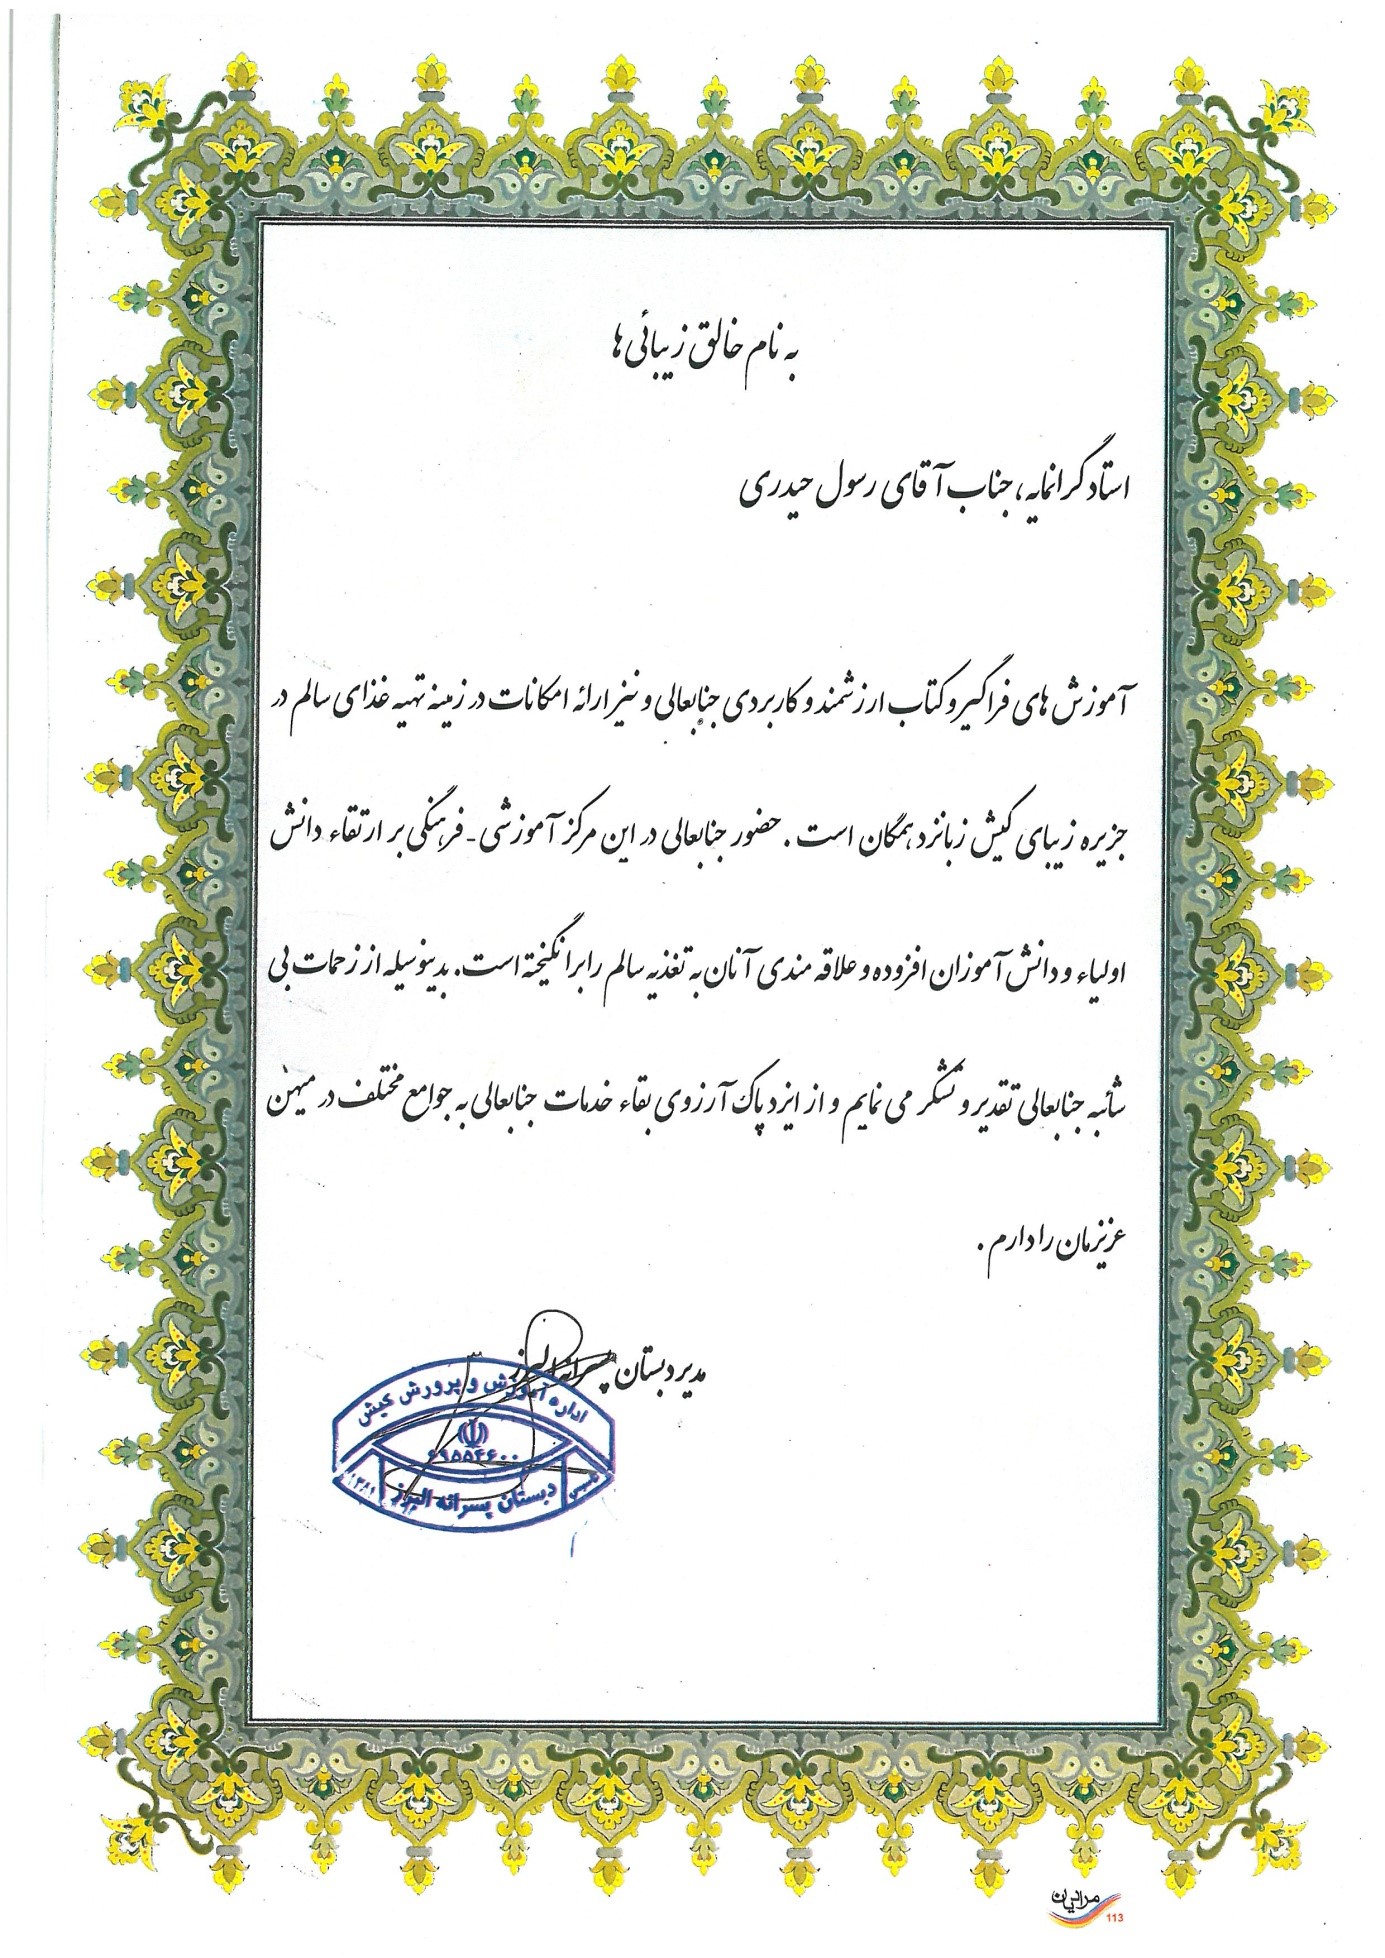 به نام خالق زیبائی ها
استاد گرانمایه، جناب آقای رسول حیدری
آموزش های فراگیر و کتاب ارزشمند و کاربردی جنابعالی و نیز ارائه امکانات در زمینه تهیه غذای سالم در
جزیره زیبای کیش زبانزد همگان است . حضور جنابعالی در این مرکز آموزشی - فرهنگی بر ارتقاء دانش
اولیاء و دانش آموزان افزوده و علاقه مندی آنان به تغذیه سالم را برانگیخته است. بدینوسیله از زحمات بی
شائبه جنابعالی تقدیر و تشکر می نمایم و از ایزد پاک آرزوی بقاء خدمات جنابعالی به جوامع مختلف در میهن
عزیزمان را دارم .
مدیر دبستان پسرانه البرز
اداره آموزش و پرورش کیش
دبستان پسرانه البرز
مرادیان
113